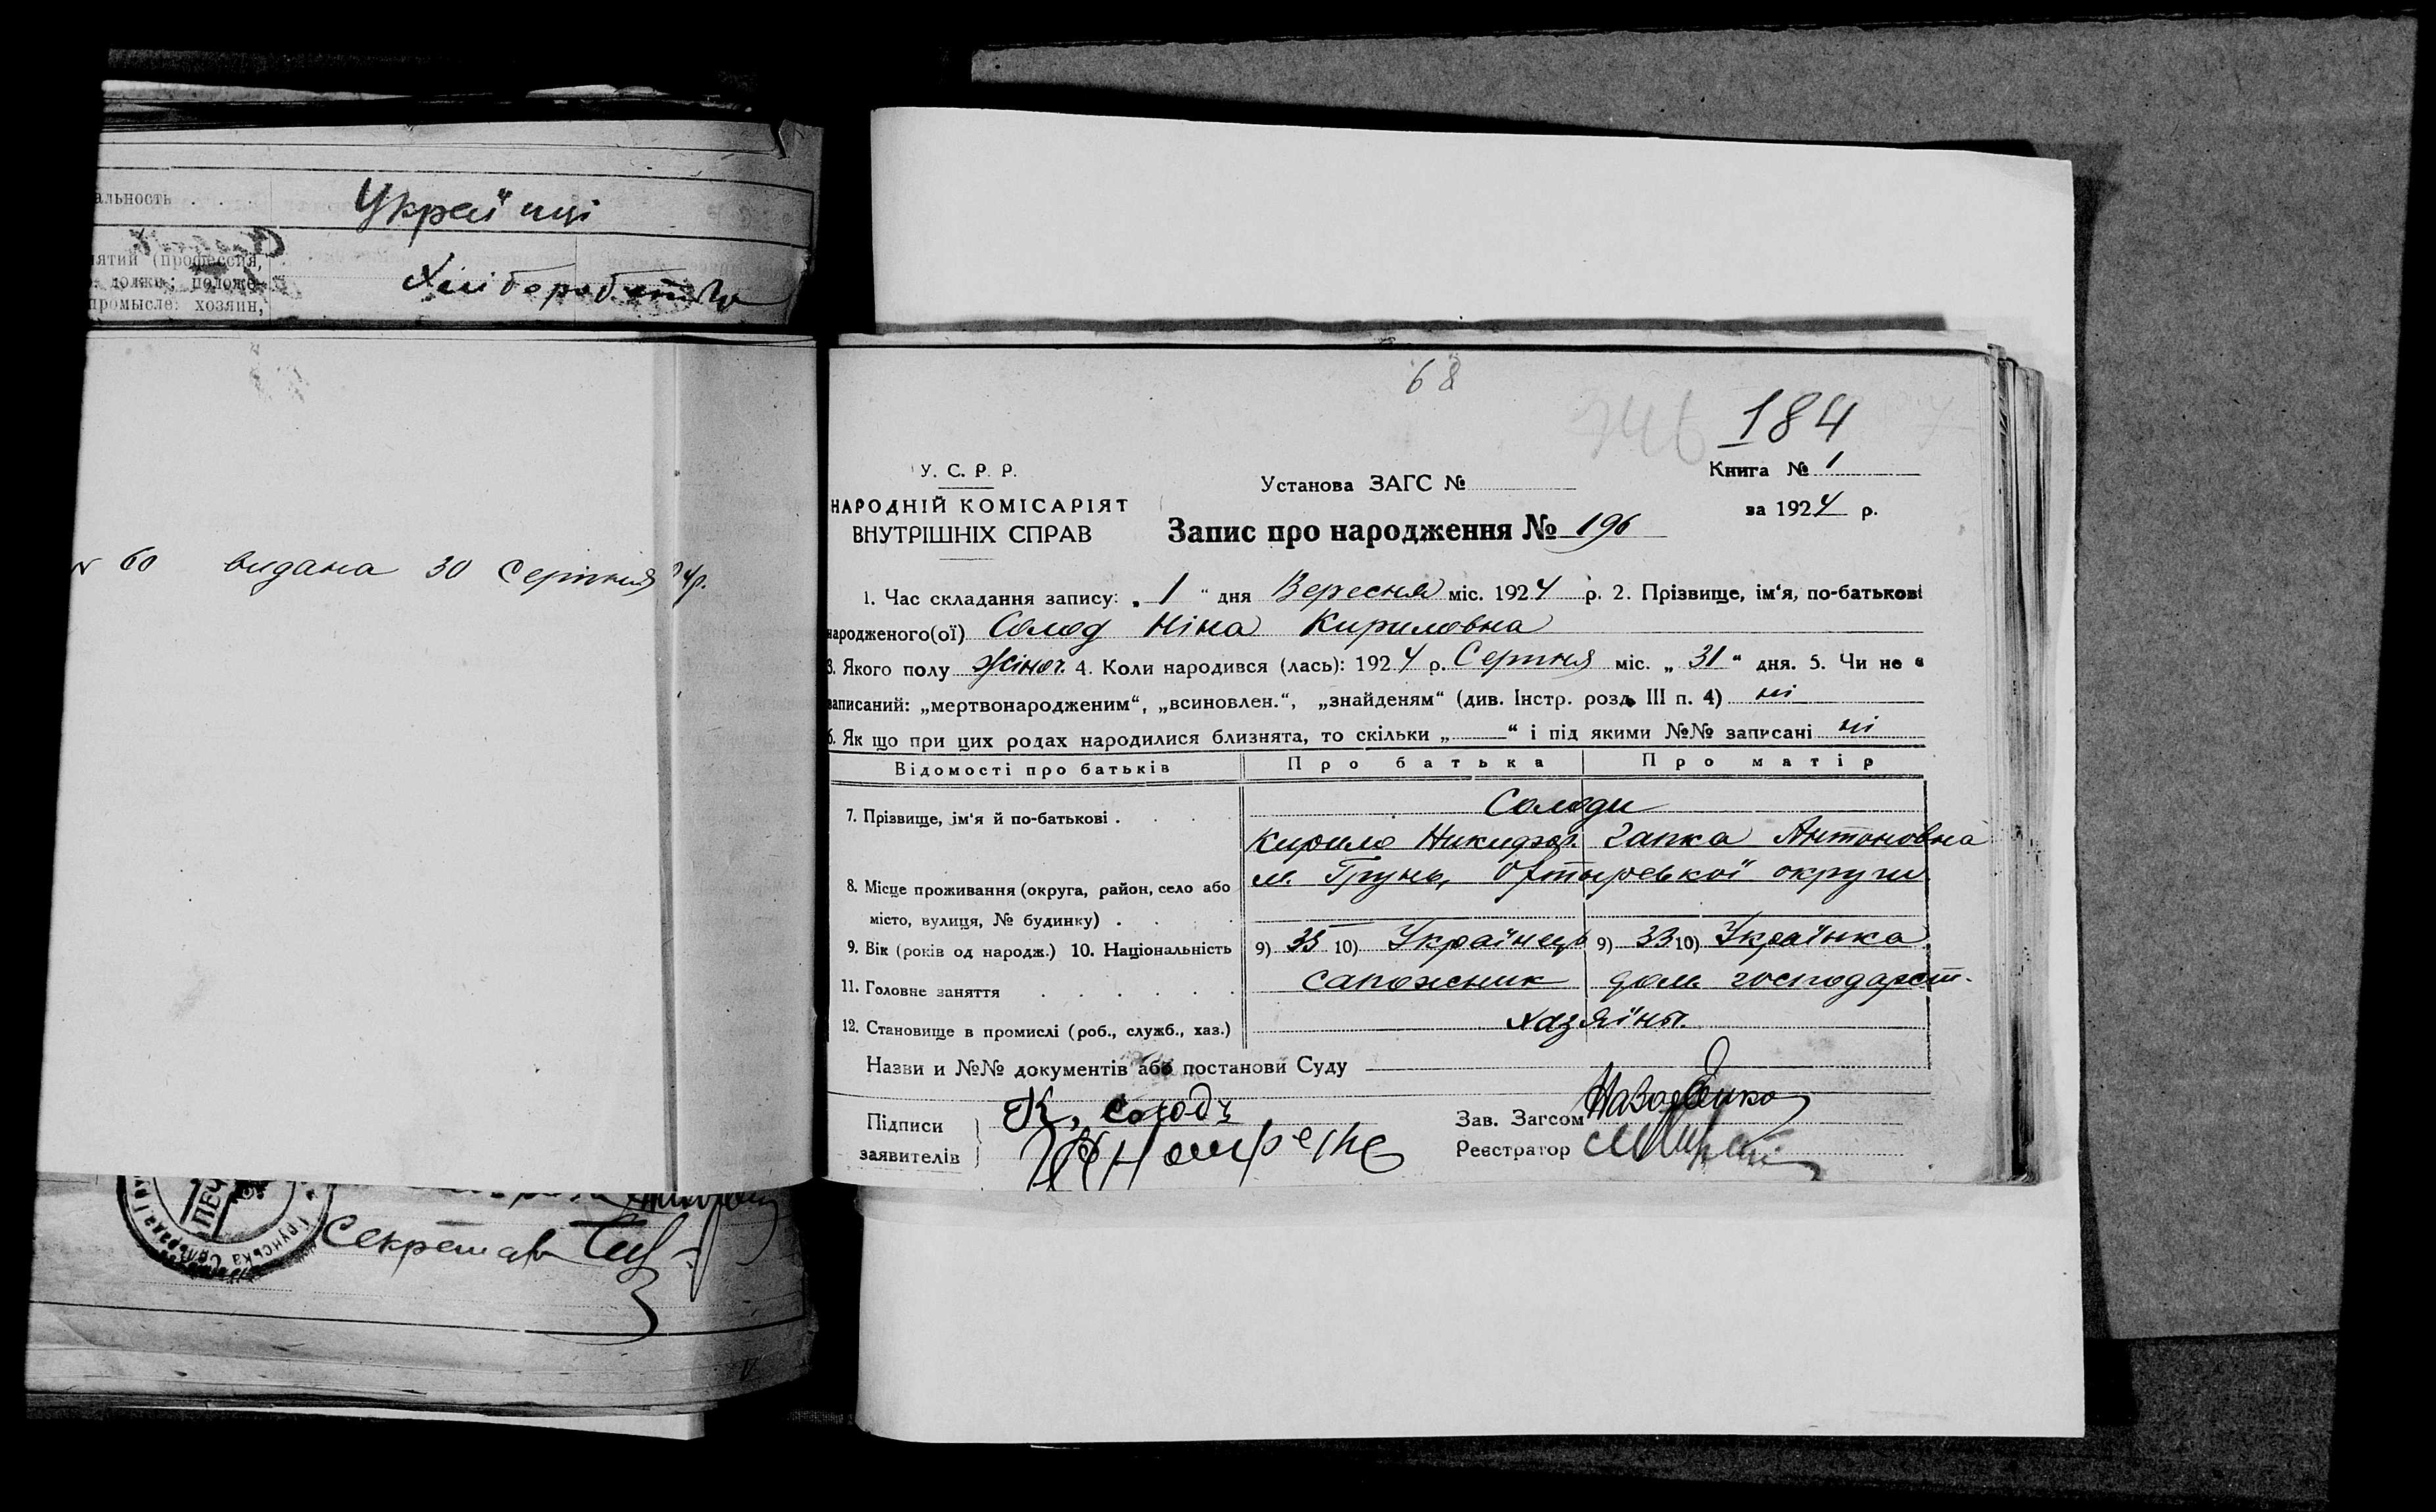 альность . . . Українці
нятий (профессия,
должн.; положе-
промысле: хозяин,
Хліборобство
№ 60 видана 30 Серпня 24р.
Секретар
68
746
184
У. С. Р. Р.
НАРОДНІЙ КОМІСАРІЯТ
ВНУТРІШНІХ СПРАВ
Установа ЗАГС №
Книга № 1
за 1924 р.
Запис про народження № 196
1. Час складання запису: „ 1 “ дня Вересня міс. 1924 р. 2. Прізвище, ім‘я, по-батькові
народженого(ої) Солод Ніна Кириловна
3. Якого полу жіноч. 4. Коли народився (лась): 1924 р. Серпня міс. „ 31 “ дня. 5. Чи не є
записаний: „мертвонародженим“, „всиновлен.“, „знайденям“ (див. Інстр. розд. III п. 4) ні
6. Як що при цих родах народилися близнята, то скільки „ —— “ і під якими №№ записані ні
Відомості про батьків Про батька Про матір
7. Прізвище, ім‘я й по-батькові . . . . Солоди
Кирило Никифор. Гапка Антоновна
8. Місце проживання (округа, район, село або м. Грунь, Охтырської округи
місто, вулиця, № будинку) . . .
9. Вік (років од народж.) 10. Національність 9) 35 10) Українець 9) 33 10) Українка
11. Головне заняття . . . . . . сапожник дом. господарст.
12. Становище в промислі (роб., служб., хаз.) хазяїны.
Назви и №№ документів або постанови Суду
Підписи
заявителів
К. Солодъ
Зав. Загсом
Реєстратор